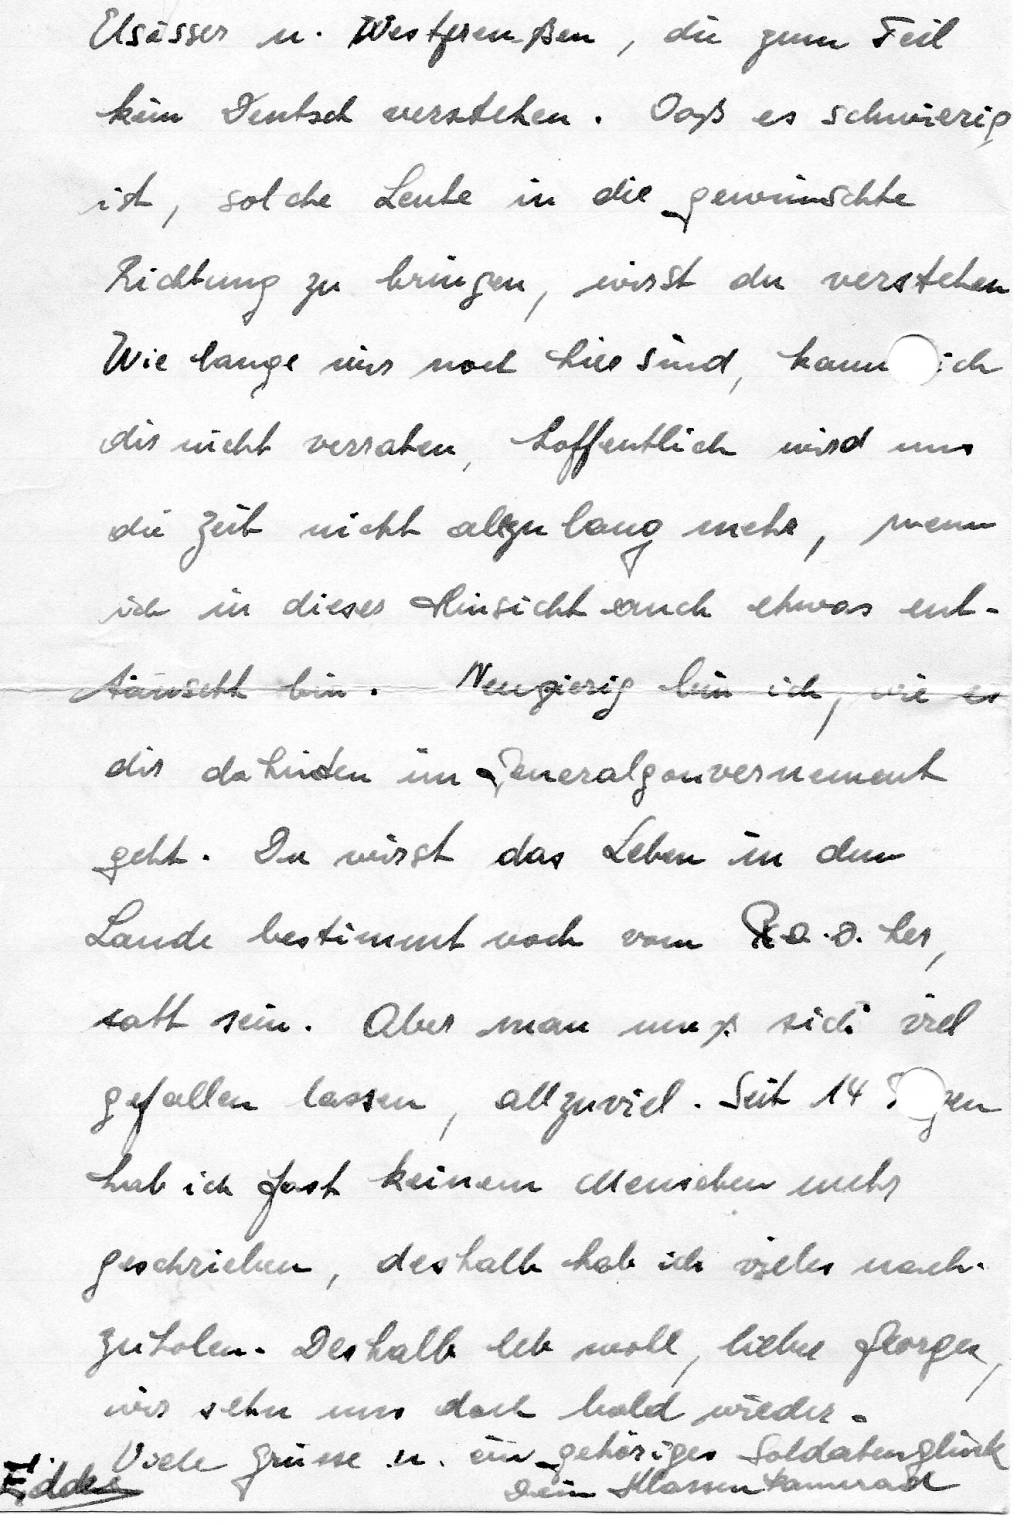 Elsässer u. Westpreußen, die zum Teil
kein Deutsch verstehen. Daß es schwierig
ist, solche Leute in die gewünschte
Richtung zu bringen, wirst du verstehen
Wie lange wir noch hier sind, kann ich
dir nicht verraten, hoffentlich wird uns
die Zeit nicht allzu lang mehr, wenn
ich in dieser Hinsicht auch etwas ent-
täuscht bin. Neugierig bin ich, wie es
dir da hinten im Generalgouvernement
geht. Du wirst das Leben in dem
Lande bestimmt noch vom R.a.d. her,
satt sein. Aber man muß sich viel
gefallen lassen, allzuviel. Seit 14 Tagen
hab ich fast keinem Menschen mehr
geschrieben, deshalb hab ich vieles nach-
zuholen. Deshalb leb wohl, lieber
wir sehn uns doch bald wieder.
Viele Grüsse u. ein gehöriges Soldatenglück
Dein Klassenkamerad